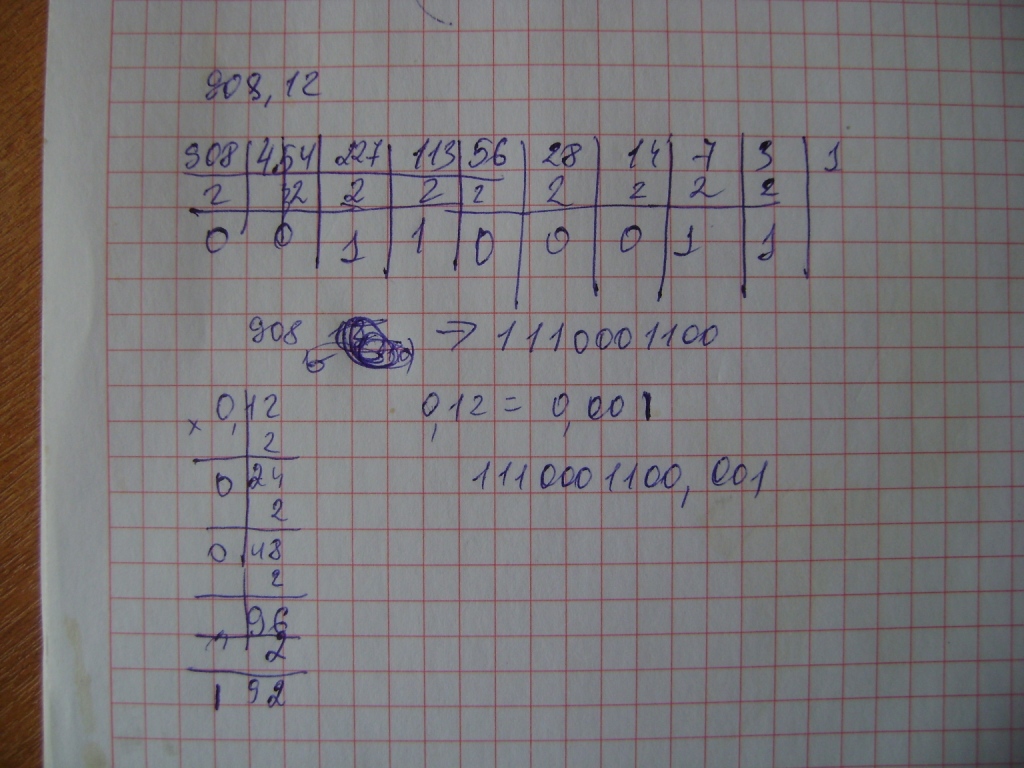 908,12
908 454 227 113 56 28 14 7 3 1
2 2 2 2 2 2 2 2 2
0 0 1 1 0 0 0 1 1
908 → 1110001100
× 0,12 0,12 = 0,001
2
0 24 1110001100,001
2
0 48
2
96
2
1 92